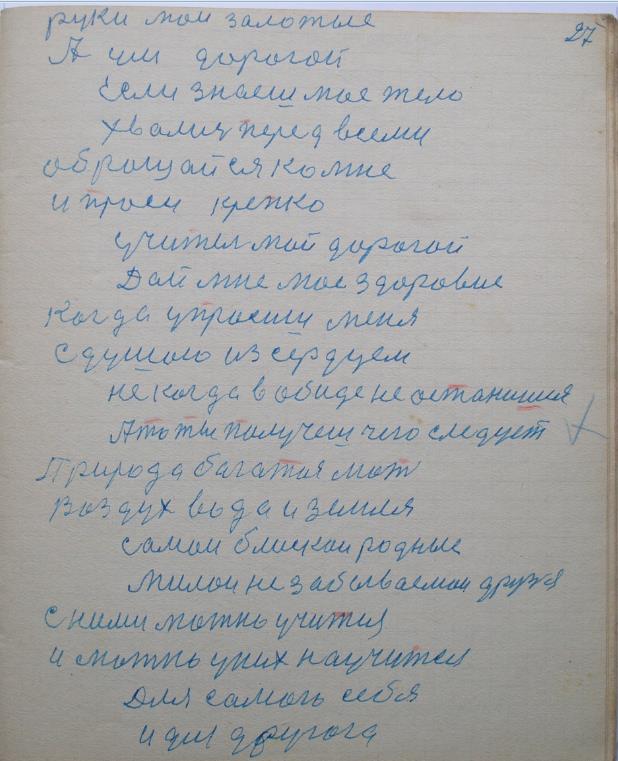 27
руки мои залотые
А ум дорогой
Если знаеш мое тело
хвализ перед всеми
оброщайся ко мне
и проси крепко
учител мой дорогой
Дай мне мое здоровие
когда упросиш меня
с душою из сердцем
некогда в обиде не останишся
А то ты получеш чего следует
Природа багатая мать
воздух вода и земля
самои блискои родные
милои незабываемои друзя
с ними можно учится
и можно у них научится
для самого себя
и для другога